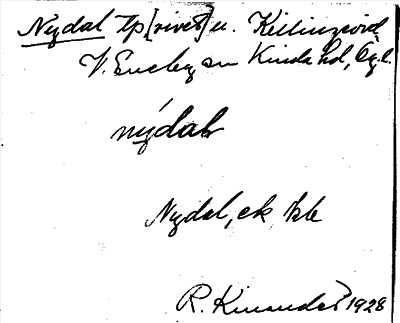 Nydal tp [rivet] u. Killingevid
V. Eneby sn Kinda hd, Ög.l.
nýdaḷ
Nydal, ek kbl
R. Kinander 1928